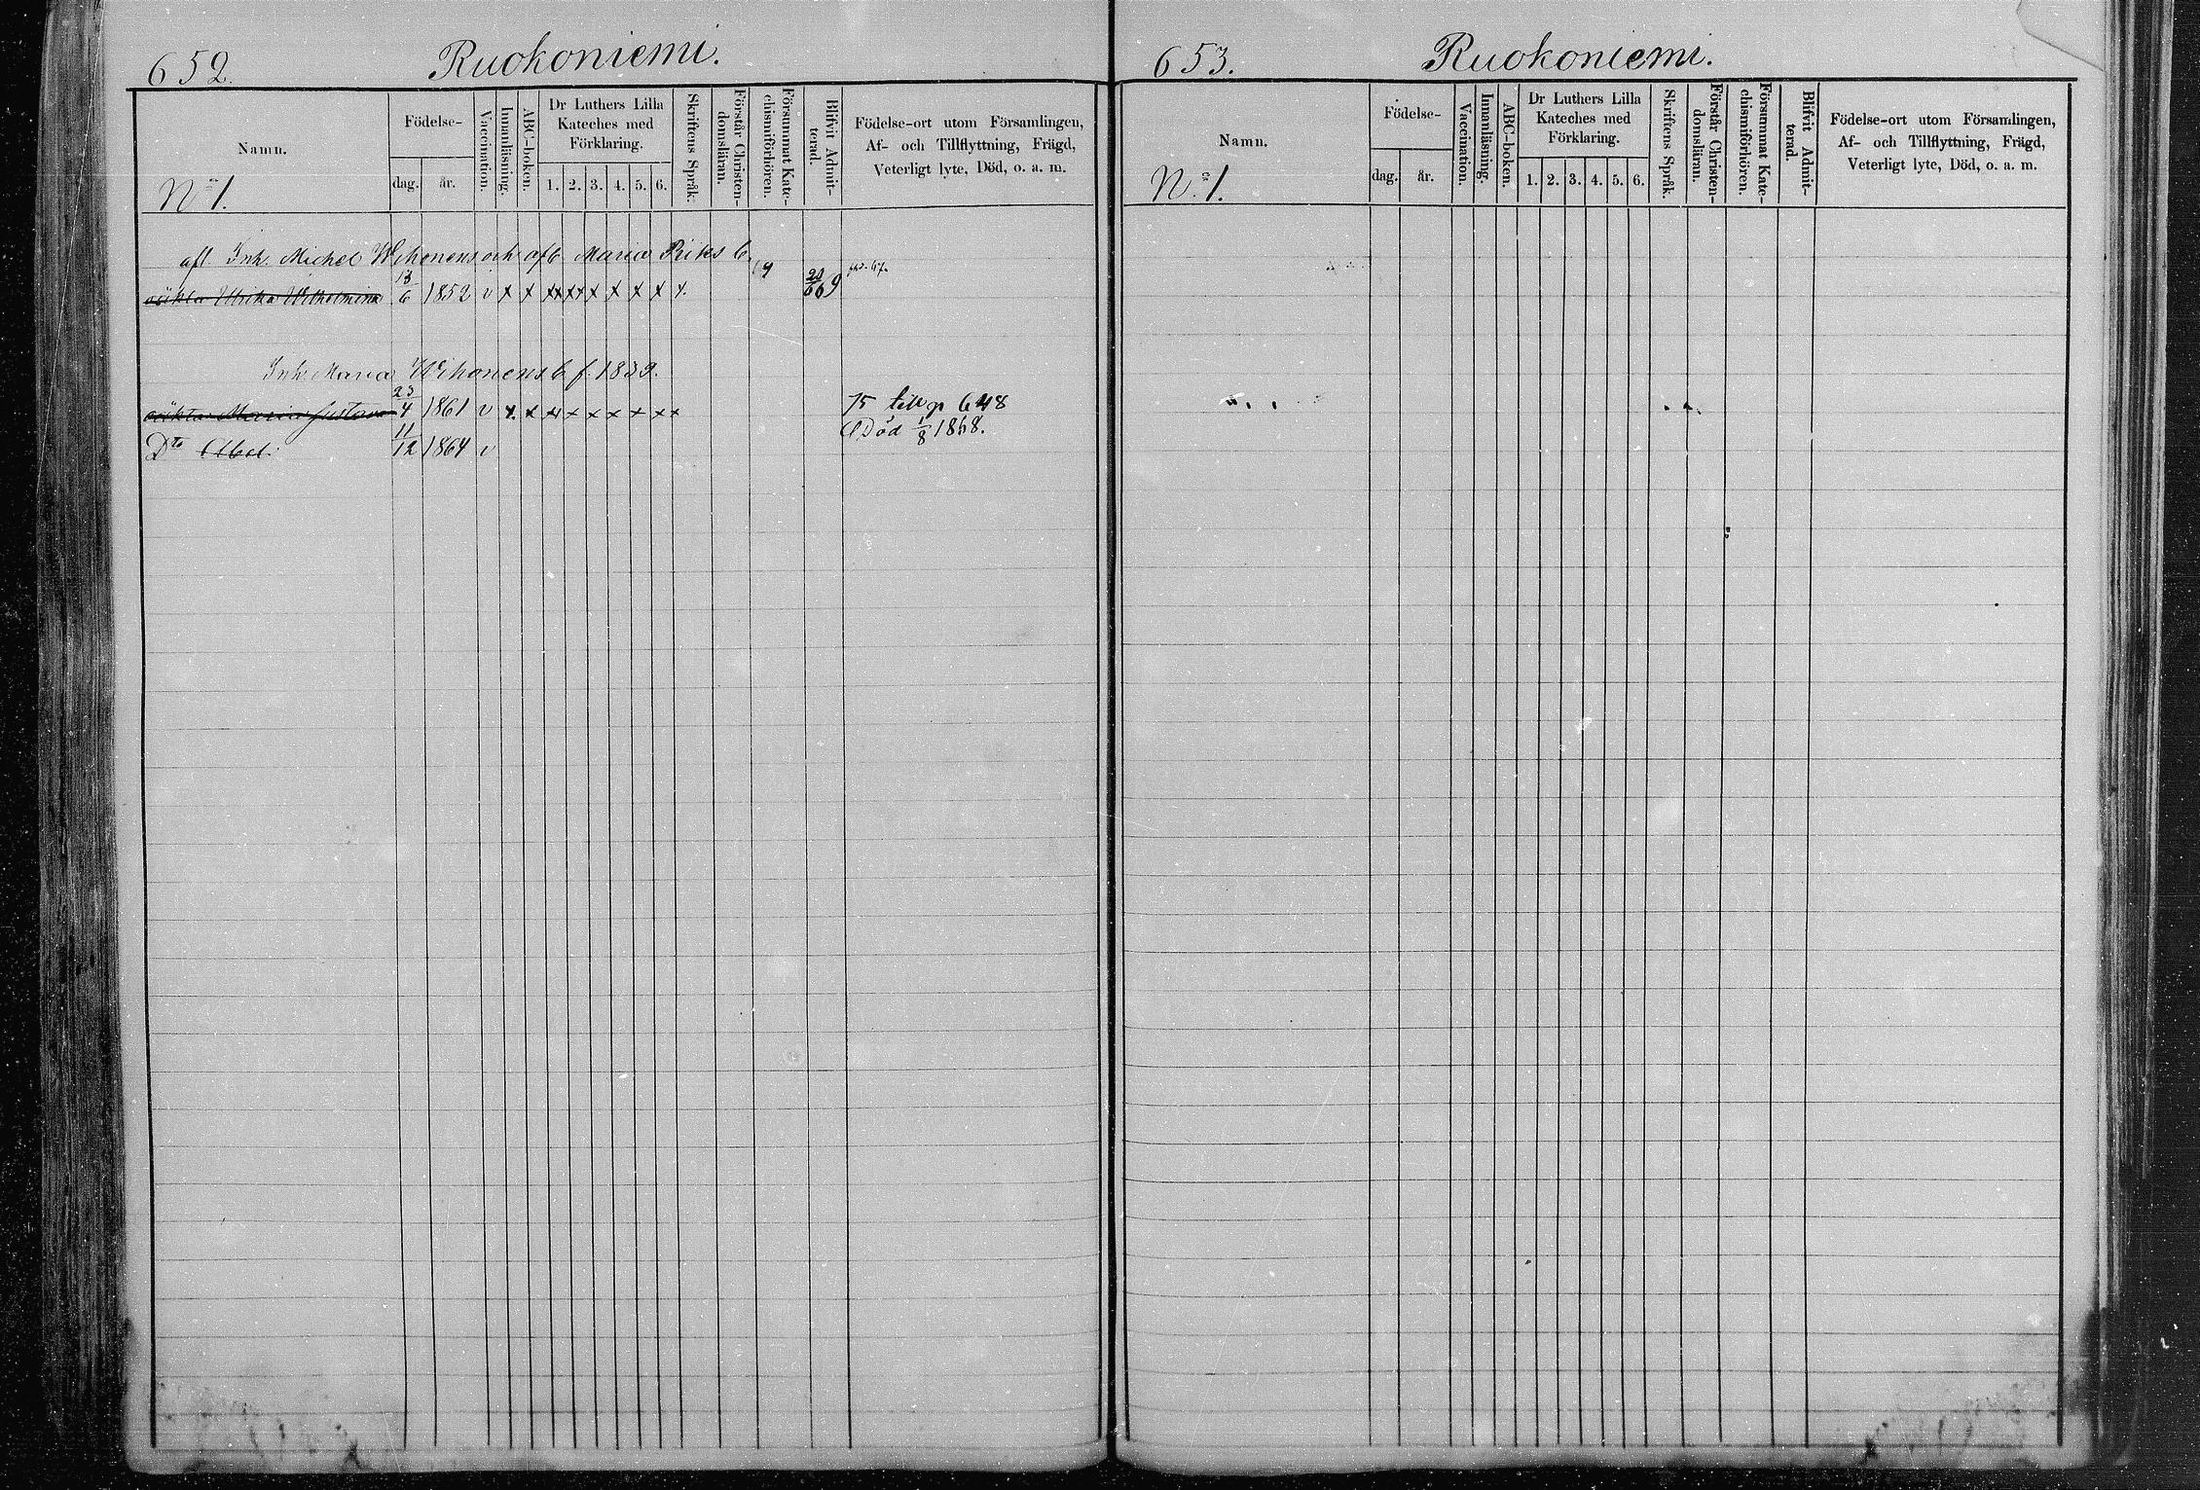 652. Ruokoniemi.
Namn. Födelse- dag. år. Vaccination. Innanläsning. ABC-boken. Dr Luthers Lilla Kateches med Förklaring. 1. 2. 3. 4. 5. 6. Skriftens Språk. Förstår Christendomsläran. Försummat Katechismiförhören. Blifvit Admitterad. Födelse-ort utom Församlingen, Af- och Tillflyttning, Frägd, Veterligt lyte, Död, o. a. m.
No 1.
afl Inh. Michel Wihonens och afl Maria
oäkta Ulrika Wilhelmina 13/6 1852 v x x xx xx x x x x x. 69
Inh. Maria Wihonens f. 1839.
oäkta Maria Gustava 23/4 1861 v x. x x x x x x x x 75 till p 648
Dto Abel. 11/12 1864 v Död 1/8 1868.
653. Ruokoniemi.
Namn. Födelse- dag. år. Vaccination. Innanläsning. ABC-boken. Dr Luthers Lilla Kateches med Förklaring. 1. 2. 3. 4. 5. 6. Skriftens Språk. Förstår Christendomsläran. Försummat Katechismiförhören. Blifvit Admitterad. Födelse-ort utom Församlingen, Af- och Tillflyttning, Frägd, Veterligt lyte, Död, o. a. m.
No 1.